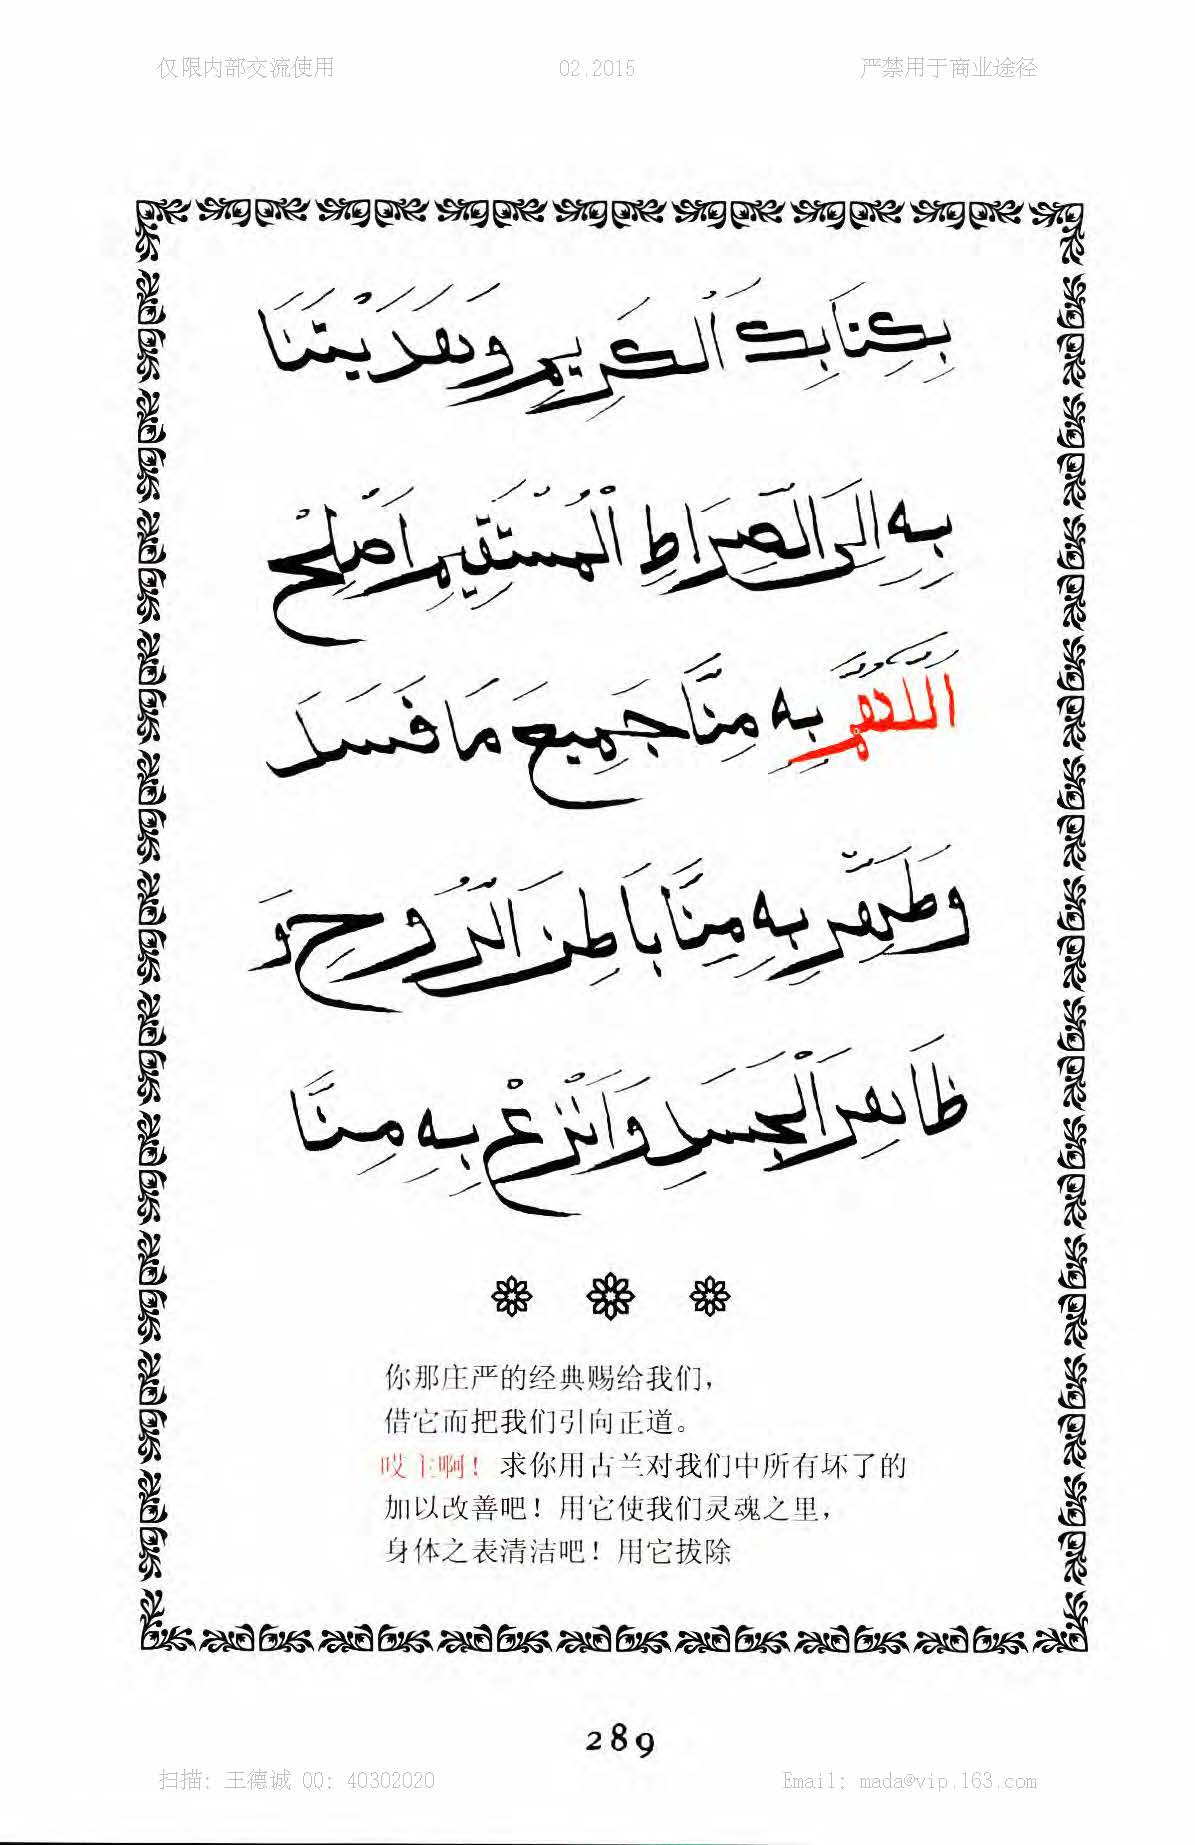 仅限内部交流使用 02.2015 严禁用于商业途径
بِكِتَابِكَ الْكَرِيمِ وَهَدَيْتَنَا
بِهِ اِلَى الصِّرَاطِ الْمُسْتَقِيمِ اَصْلِحْ
اَللّٰهُمَّ بِهِ مِنَّا جَمِيعَ مَا فَسَدَ
وَطَهِّرْ بِهِ مِنَّا بَاطِنَ الرُّوحِ وَ
ظَاهِرَ الْجَسَدِ وَانْزَعْ بِهِ مِنَّا
你那庄严的经典赐给我们，
借它而把我们引向正道。
哎主啊！求你用古兰对我们中所有坏了的
加以改善吧！用它使我们灵魂之里，
身体之表清洁吧！用它拔除
289
扫描：王德诚 QQ：40302020 Email：mada@vip.163.com